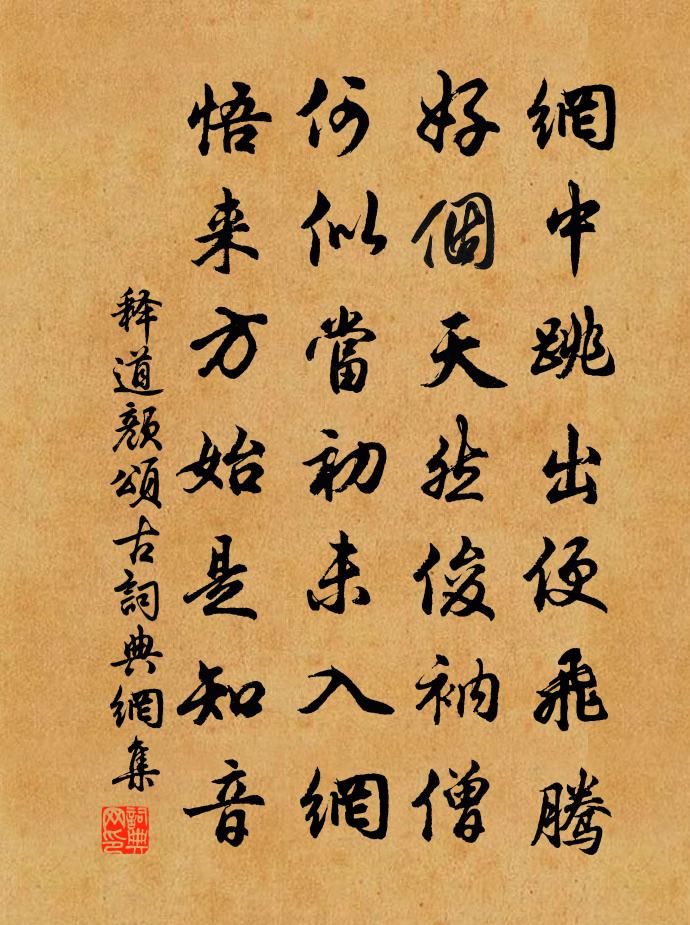 網中跳出便飛騰
好個天然俊衲僧
何似當初未入網
悟来方始是知音
释道颜頌古詞典網集
詞典网印